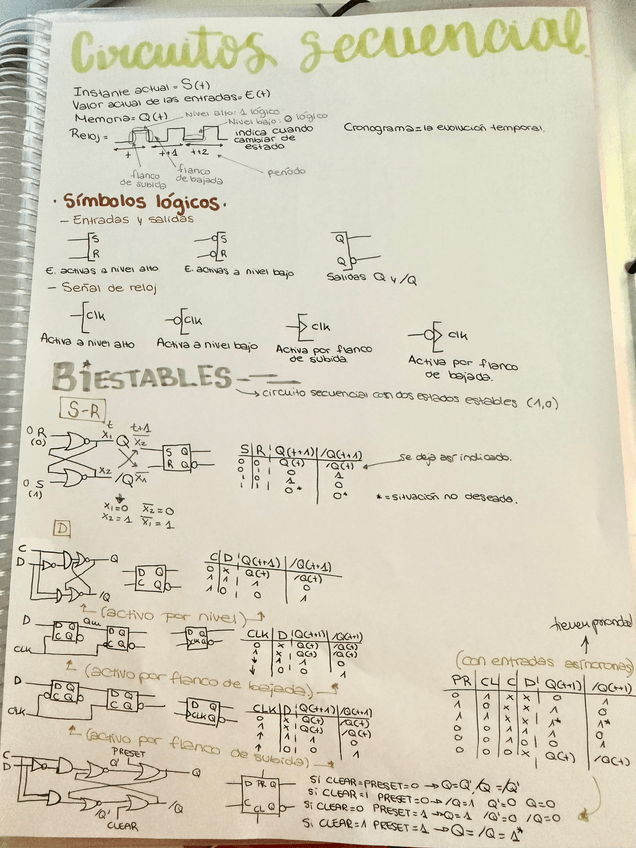 Circuitos secuencial
Instante actual = S(t)
Valor actual de las entradas = E(t)
Memoria = Q(t)
Nivel alto: 1 lógico
Nivel bajo: 0 lógico
Reloj =
indica cuando
cambiar de
estado.
Cronograma = la evolución temporal.
t t+1 t+2
flanco
de subida
flanco
de bajada
período
· Símbolos lógicos.
- Entradas y salidas
S
R
S
R
Q
Q
E. activas a nivel alto
E. activas a nivel bajo
Salidas Q y /Q
- Señal de reloj
clk
clk
clk
clk
Activa a nivel alto
Activa a nivel bajo
Activa por flanco
de subida
Activa por flanco
de bajada.
BIESTABLES
circuito secuencial con dos estados estables (1,0)
S-R
0 R
(0)
t
t+1
X1 Q X2
X2 /Q X1
0 S
(1)
S Q
R Q
X1=0 X2=0
X2=1 X1=1
S R Q(t+1) /Q(t+1)
0 0 Q(t) /Q(t)
se deja así indicado.
* = situación no deseada.
D
C
D
Q
/Q
D Q
C Q
C D Q(t+1) /Q(t+1)
0 x Q(t) /Q(t)
1 1 1 0
1 0 0 1
(activo por nivel)
D
CLK
D Q
C Q
D Q
C Q
D Q
CLK Q
CLK D Q(t+1) /Q(t+1)
0 x Q(t) /Q(t)
1 x Q(t) /Q(t)
↓ 1 1 0
↓ 0 0 1
(activo por flanco de bajada)
D
CLK
D Q
C Q
D Q
C Q
D Q
CLK Q
CLK D Q(t+1) /Q(t+1)
0 x Q(t) /Q(t)
1 x Q(t) /Q(t)
↑ 1 1 0
↑ 0 0 1
(activo por flanco de subida)
tienen prioridad
(con entradas asíncronas)
PR CL C D Q(t+1) /Q(t+1)
0 1 x x 0 1
1 0 x x 1 0
1 1 x x 1* 1*
0 0 x Q(t) /Q(t)
C
D
PRESET
Q'
Q
/Q'
/Q
CLEAR
D PR Q
C CL Q
Si CLEAR=PRESET=0 → Q=Q' /Q=/Q'
Si CLEAR=1 PRESET=0 → /Q=1 Q'=0 Q=0
Si CLEAR=0 PRESET=1 → Q=1 /Q'=0 /Q=0
Si CLEAR=1 PRESET=1 → Q=/Q=1*